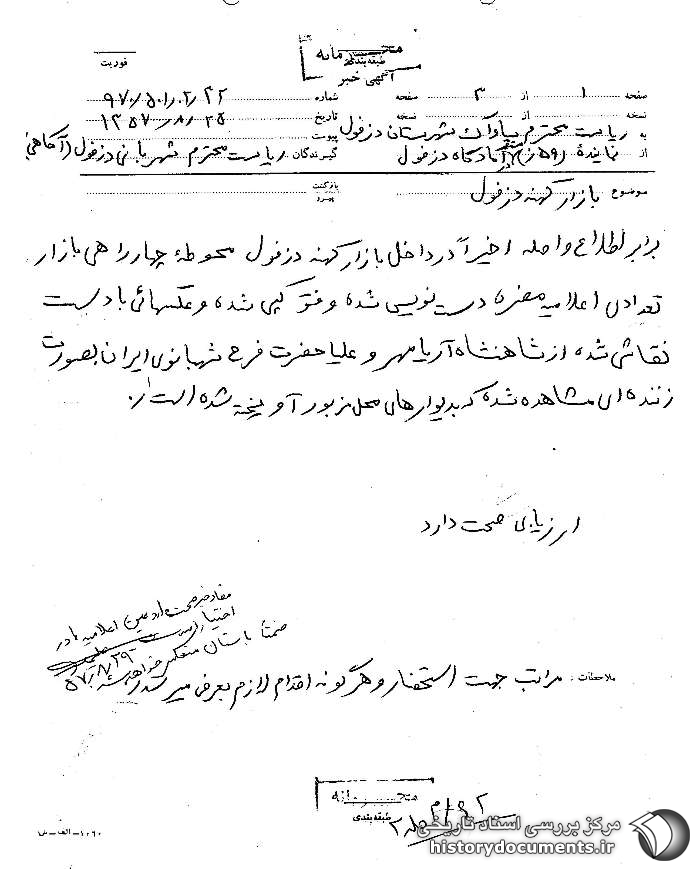 محرمانه
طبقه‌بندی
آگهی خبر
فوریت
صفحه ۱ از ۳ صفحه شماره ۹۷۰/۵۰۱۰۲/۴۲
نسخه از نسخه تاریخ ۱۳۵۷/۸/۲۵
به ریاست محترم ساواک شهرستان دزفول پیوست
از نماینده آمادگاه دزفول گیرندگان ریاست محترم شهربانی دزفول (آگاهی)
موضوع بازار کهنه دزفول بازگشت
برابر اطلاع واصله اخیراً در داخل بازار کهنه دزفول محوطهٔ چهار راهی بازار
تعدادی اعلامیه مضره دست نویسی شده و فتوکپی شده و عکسهائی با دست
نقاشی شده از شاهنشاه آریامهر و علیاحضرت فرح شهبانوی ایران بصورت
زننده‌ای مشاهده شده که بدیوارهای محل مزبور آویخته شده است.
ارزیابی صحت دارد
مفاد خبر صحت دارد عین اعلامیه ها در
اختیار است
ضمناً باستان منعکس خواهد شد
۵۷/۸/۲۹
ملاحظات: مراتب جهت استحضار و هرگونه اقدام لازم بعرض میرسد
محرمانه
طبقه‌بندی
۱۰۶۰-الف-ش
مرکز بررسی اسناد تاریخی
historydocuments.ir